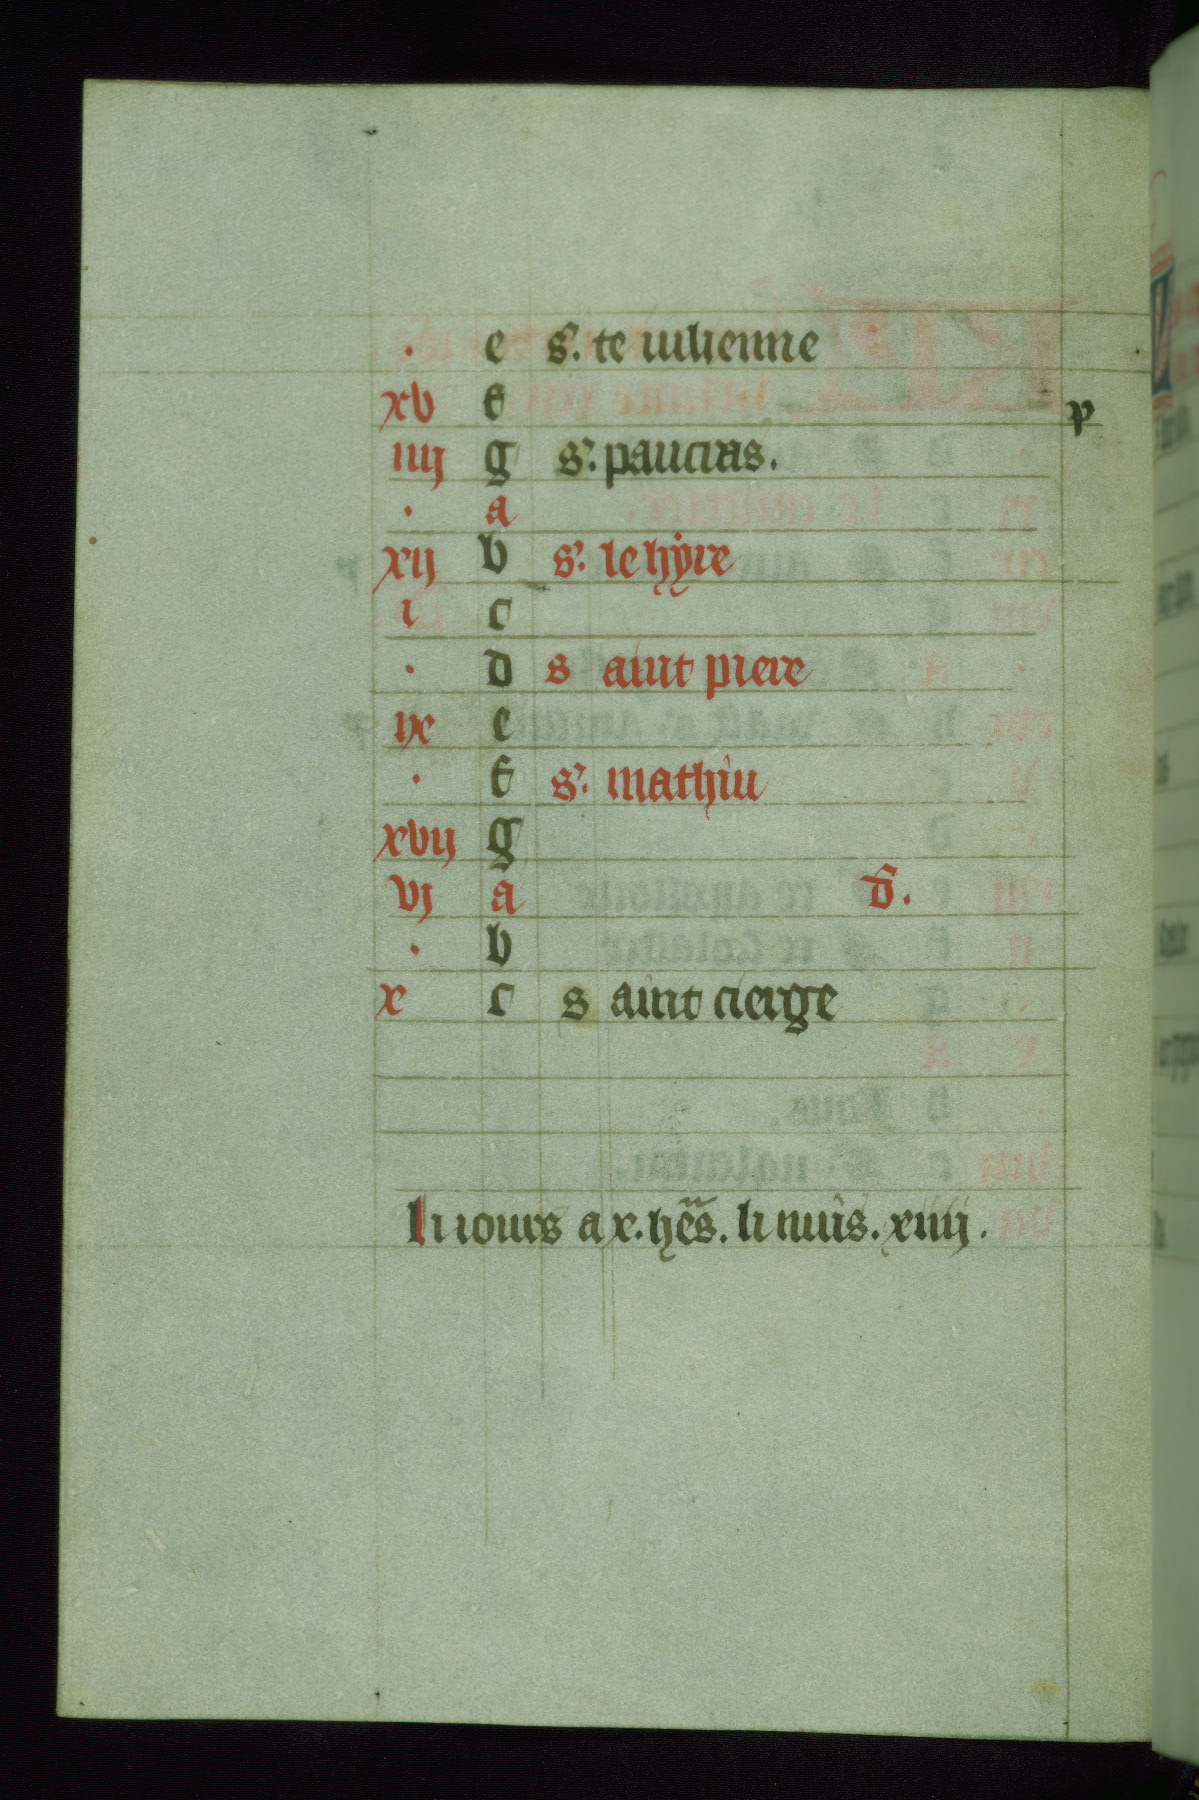 . e s. te iulienne
xv f p
iiij g s. paucias.
. a
xij b s. lehyre
i c
. d s aint piere
ix e
. f s. mathiu
xvij g
vj a d.
. b
x c s aint cierge
li iours a x. hes. li nuis. xiiij.